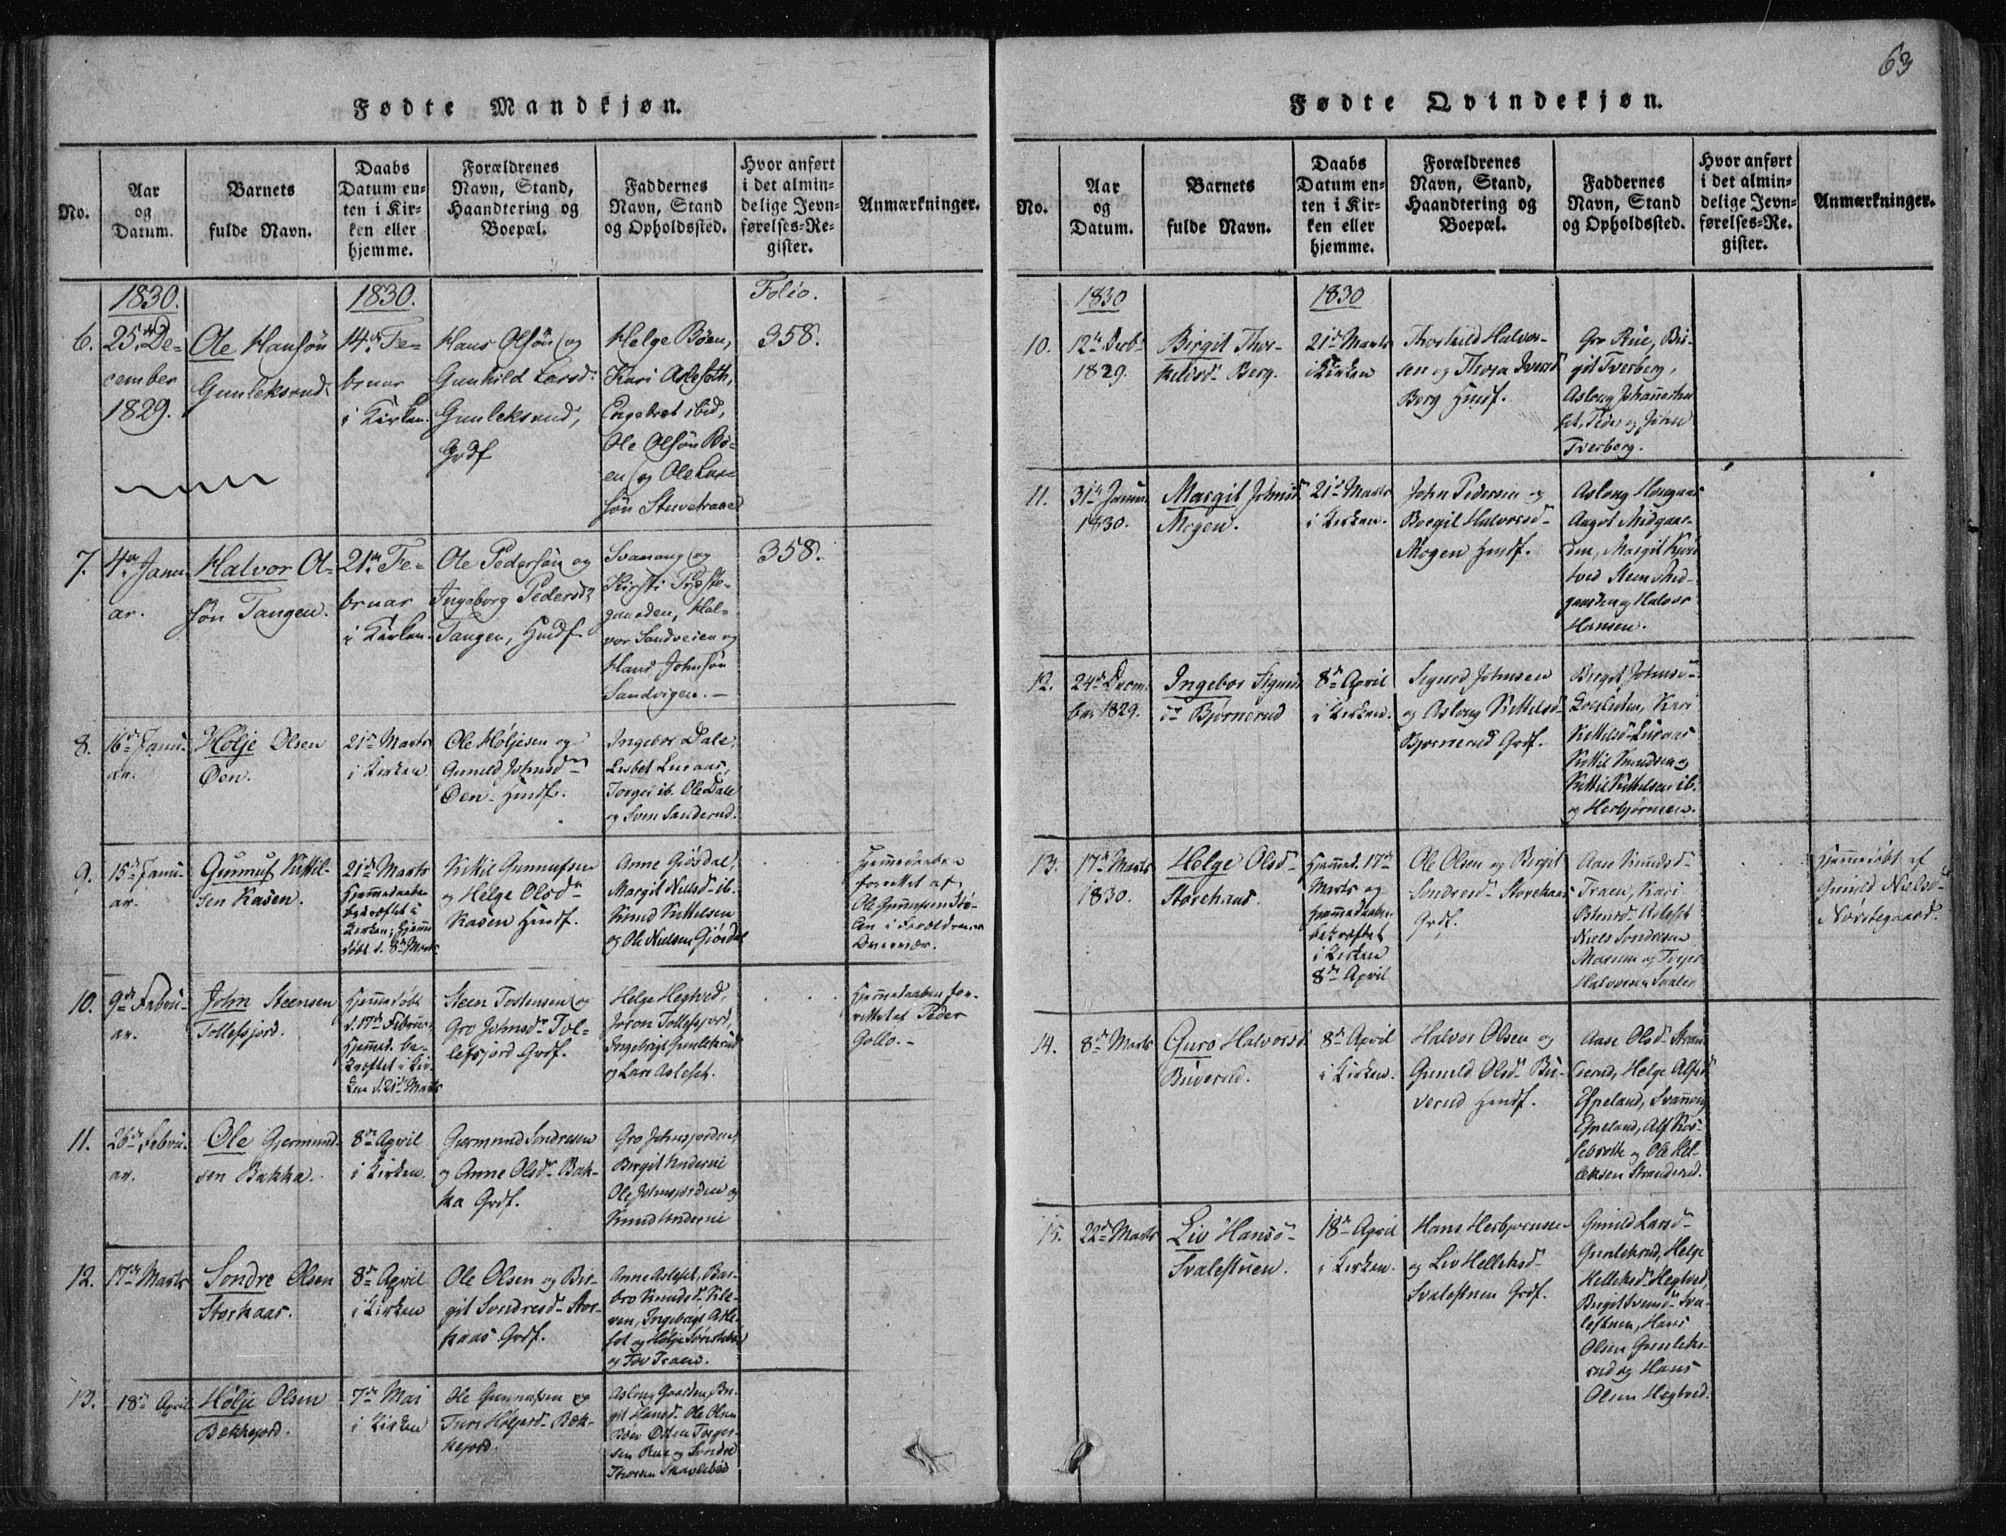 63
Fødte Mandkjøn.
No.
Aar
og
Datum.
Barnets
fulde Navn.
Daabs
Datum en-
ten i Kir-
ken eller
hjemme.
Forældrenes
Navn, Stand,
Haandtering og
Boepæl.
Faddernes
Navn, Stand
og Opholdssted.
Hvor anført
i det almin-
delige Jevn-
førelses-Re-
gister.
Anmærkninger.
1830.
1830.
Folio.
6.
25de De-
cember
1829.
Ole Hansøn
Gunleksrud.
14de Fe-
bruar
i Kirken.
Hans Olsøn og
Gunhild Larsd:
Gunleksrud,
Grdf
Helge Bøen,
Kari Aslefeth,
Engebret ibid,
Ole Olsøn Bø-
en og Ole Lar-
søn
358.
7.
4de Janu-
ar.
Halvor Ol-
søn Tangen.
21de Fe-
bruar
i Kirken.
Ole Pedersøn og
Ingeborg Pedersd:
Tangen, Hmdf.
Svanaug og
Kirsti Præste-
gaarden, Hal-
vor Sandveien og
Hans Johnsøn
Sandvigen. —
358.
8.
16de Janu-
ar.
Hølje Olsen
Øen.
21de Marts
i Kirken
Ole Høljesen og
Gunild Johnsd
Øen Hmdf.
Ingebor Dale,
Lisbet Luraas,
Torger ib. Ole Dale
og Sven Sanderud.
9.
15de Janu-
ar.
Gunnuf Kittil-
sen Kasen.
21de Marts
Hjemmedaaben
bekræftet i
Kirken; Hjemme
døbt d. 8de Marts
Kittil Gunnufsen
og Helge Olsd
Kasen Hmdf.
Anne Gjøsdal,
Margit Nielsd ib.
Knud Kittelsen
og Ole Nielsen Gjøsdal
Hjemmedaaben
forrettet af
Ole
i Forældrenes
10.
9de Febru-
ar.
John Steensen
Tollefsjord.
Hjemmedøbt
d. 17de Februar,
Hjemmed. be-
kræftet i Kir-
ken d. 21de Marts
Steen Tostensen og
Gro Johnsd Tol-
lefsjord Grdf.
Helge Hegtved,
Joron Tollefsjord,
Ingebrigt Gunleksrud
og Lars Aslefet.
Hjemmedaaben for-
rettet af Peder
Gollo.-
11.
26de Febru-
ar.
Ole Gjermund-
sen Bakka.
8de April
i Kirken.
Gjermund Sondresen
og Anne Olsd Bak-
ka Grdf.
Gro Johnsjorden,
Birgit Underni
Ole Johnsjorden og
Knud Underni
12.
17de Marts
Sondre Olsen
Storhaas.
8de April
i Kirken
Ole Olsen og Bir-
git Sondresd Stor-
haas Grdf.
Anne Aslefet, Bar-
bro Knudsd
Ingebrigt Asle-
fet og Hølje
og Tov Traen.
13.
18de April
Hølje Olsen
Bækkejord.
7de Mai
i Kirken
Ole Gunnufsen og
Turi Høljesd Bæk-
kejord.
Aslong Gaarden, Bir-
git Hansd Ole Olsen
Bøen Østen Torger-
sen Rue og Sondre
Fødte Qvindekjøn.
No.
Aar
og
Datum.
Barnets
fulde Navn.
Daabs
Datum en-
ten i Kir-
ken eller
hjemme.
Forældrenes
Navn, Stand,
Haandtering og
Boepæl.
Faddernes
Navn, Stand
og Opholdssted.
Hvor anført
i det almin-
delige Jevn-
førelses-Re-
gister.
Anmærkninger.
1830
1830
10.
12te Decb.
1829.
Birgit Thor-
kildsd Berg.
21de Marts
i Kirken
Thorkild Halvor-
sen og Thora Iversd
Berg Hmdf.
Gro Rue, Bir-
git Tverberg,
Aslong
Peder og Jøran
Tverberg.
11.
31te Janu.
1830.
Margit Johnsd
Mogen.
21de Marts
i Kirken.
John Pedersen og
Borgil Halvorsd
Mogen Hmdf.
Aslong Haugaas
Angot Midgaar-
den, Margit
Steen Ned-
gaarden og Halvor
Hansen.
12.
24de Decem-
ber 1829.
Ingebor Sigurds-
dr Bjørnerud
8de April
i Kirken.
Sigurd Johnsen
og Aslong Kittelsd
Bjørnerud Grdf.
Birgit Johnsd
Kari
Kittelsd Luraas
Kittil Knudsen og
Kittil Kittelsen ib.
og Herbjørnsen.
13.
17de Marts
1830.
Helge Olsd
Storehaas.
Hjemmed. 17de
Marts og
Hjemmedaaben
bekræftet
i Kirken
8de April
Ole Olsen og Birgit
Sondresd Storehaas
Grdf.
Aase Knudsd
Traen, Kari
Aslefet
Niels Sondresen
og Torjer
Halvorsen
Hjemmedøbt af
Gunild Nielsd
Nørstegaard.
14.
8de Marts
Guro Halvorsd
Buverud.
8de April
i Kirken.
Halvor Olsen og
Gunild Olsd Bu-
verud Hmdf.
Aase Olsd Stran-
derud, Helge Alfsd
Espeland, Svanoug
Espeland, Alf
og Ole Hel-
leksen Stranderud.
15.
22de Marts
Liv Hansd
Svalestuen.
18de April
i Kirken.
Hans Herbjørnsen
og Liv Helleksd
Svalestuen Grdf.
Gunild Larsd
Gunleksrud, Helge
Helleksd Hegtved,
Birgit Svensd Sva-
lestuen, Hans
Olsen Gunleks-
rud og Hans
Olsen Hegtved.